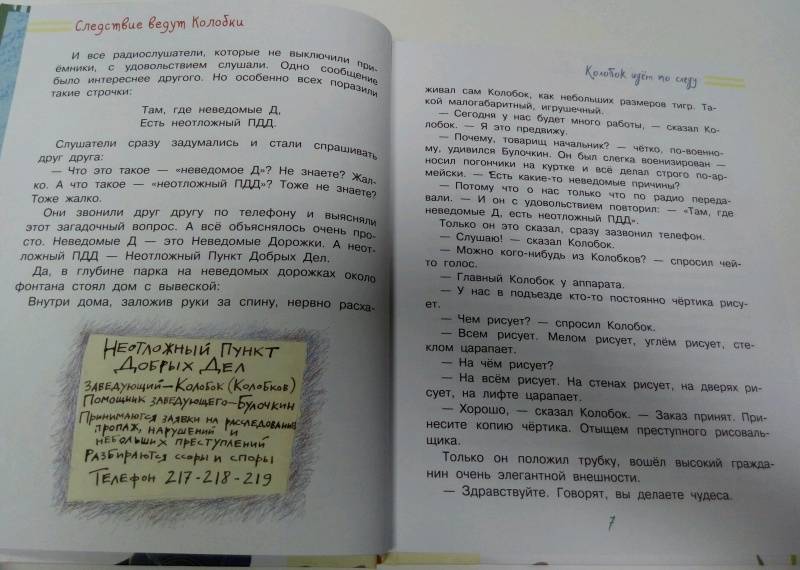 Следствие ведут Колобки
И все радиослушатели, которые не выключили при-
ёмники, с удовольствием слушали. Одно сообщение
было интереснее другого. Но особенно всех поразили
такие строчки:
Там, где неведомые Д,
Есть неотложный ПДД.
Слушатели сразу задумались и стали спрашивать
друг друга:
— Что это такое — «неведомое Д»? Не знаете? Жал-
ко. А что такое — «неотложный ПДД»? Тоже не знаете?
Тоже жалко.
Они звонили друг другу по телефону и выясняли
этот загадочный вопрос. А всё объяснялось очень про-
сто. Неведомые Д — это Неведомые Дорожки. А неот-
ложный ПДД — Неотложный Пункт Добрых Дел.
Да, в глубине парка на неведомых дорожках около
фонтана стоял дом с вывеской:
Внутри дома, заложив руки за спину, нервно расха-
Неотложный Пункт
Добрых Дел
Заведующий—Колобок (Колобков)
Помощник заведующего—Булочкин
Принимаются заявки на расследование
пропаж, нарушений и
небольших преступлений
Разбираются ссоры и споры
Телефон 217-218-219
Колобок идёт по следу
живал сам Колобок, как небольших размеров тигр. Та-
кой малогабаритный, игрушечный.
— Сегодня у нас будет много работы, — сказал Ко-
лобок. — Я это предвижу.
— Почему, товарищ начальник? — чётко, по-военно-
му, удивился Булочкин. Он был слегка военизирован —
носил погончики на куртке и всё делал строго по-ар-
мейски. — Есть какие-то неведомые причины?
— Потому что о нас только что по радио переда-
вали. — И он с удовольствием повторил: — «Там, где
неведомые Д, есть неотложный ПДД».
Только он это сказал, сразу зазвонил телефон.
— Слушаю! — сказал Колобок.
— Можно кого-нибудь из Колобков? — спросил чей-
то голос.
— Главный Колобок у аппарата.
— У нас в подъезде кто-то постоянно чёртика рису-
ет.
— Чем рисует? — спросил Колобок.
— Всем рисует. Мелом рисует, углём рисует, сте-
клом царапает.
— На чём рисует?
— На всём рисует. На стенах рисует, на дверях ри-
сует, на лифте царапает.
— Хорошо, — сказал Колобок. — Заказ принят. При-
несите копию чёртика. Отыщем преступного рисоваль-
щика.
Только он положил трубку, вошёл высокий гражда-
нин очень элегантной внешности.
— Здравствуйте. Говорят, вы делаете чудеса.
7